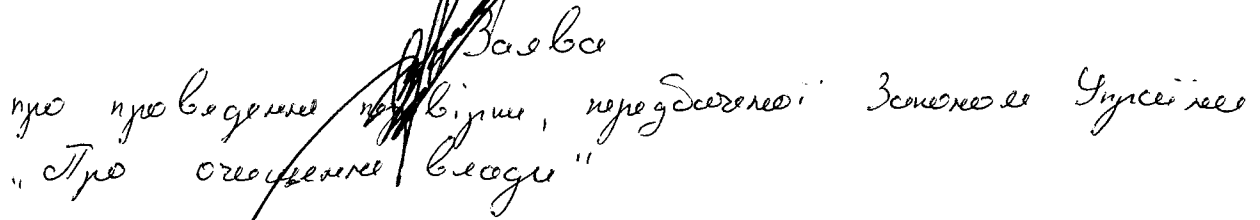 Заява
про проведення перевірки, передбаченої Законом України
„Про очищення влади"